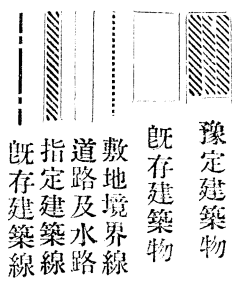 豫定建築物
旣存建築物
敷地境界線
道路及水路
指定建築線
旣存建築線